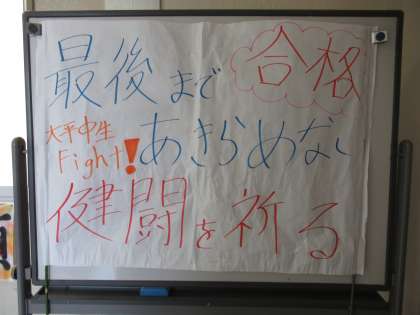 最後まで
合格
大平中生
Fight!
あきらめない
健闘を祈る